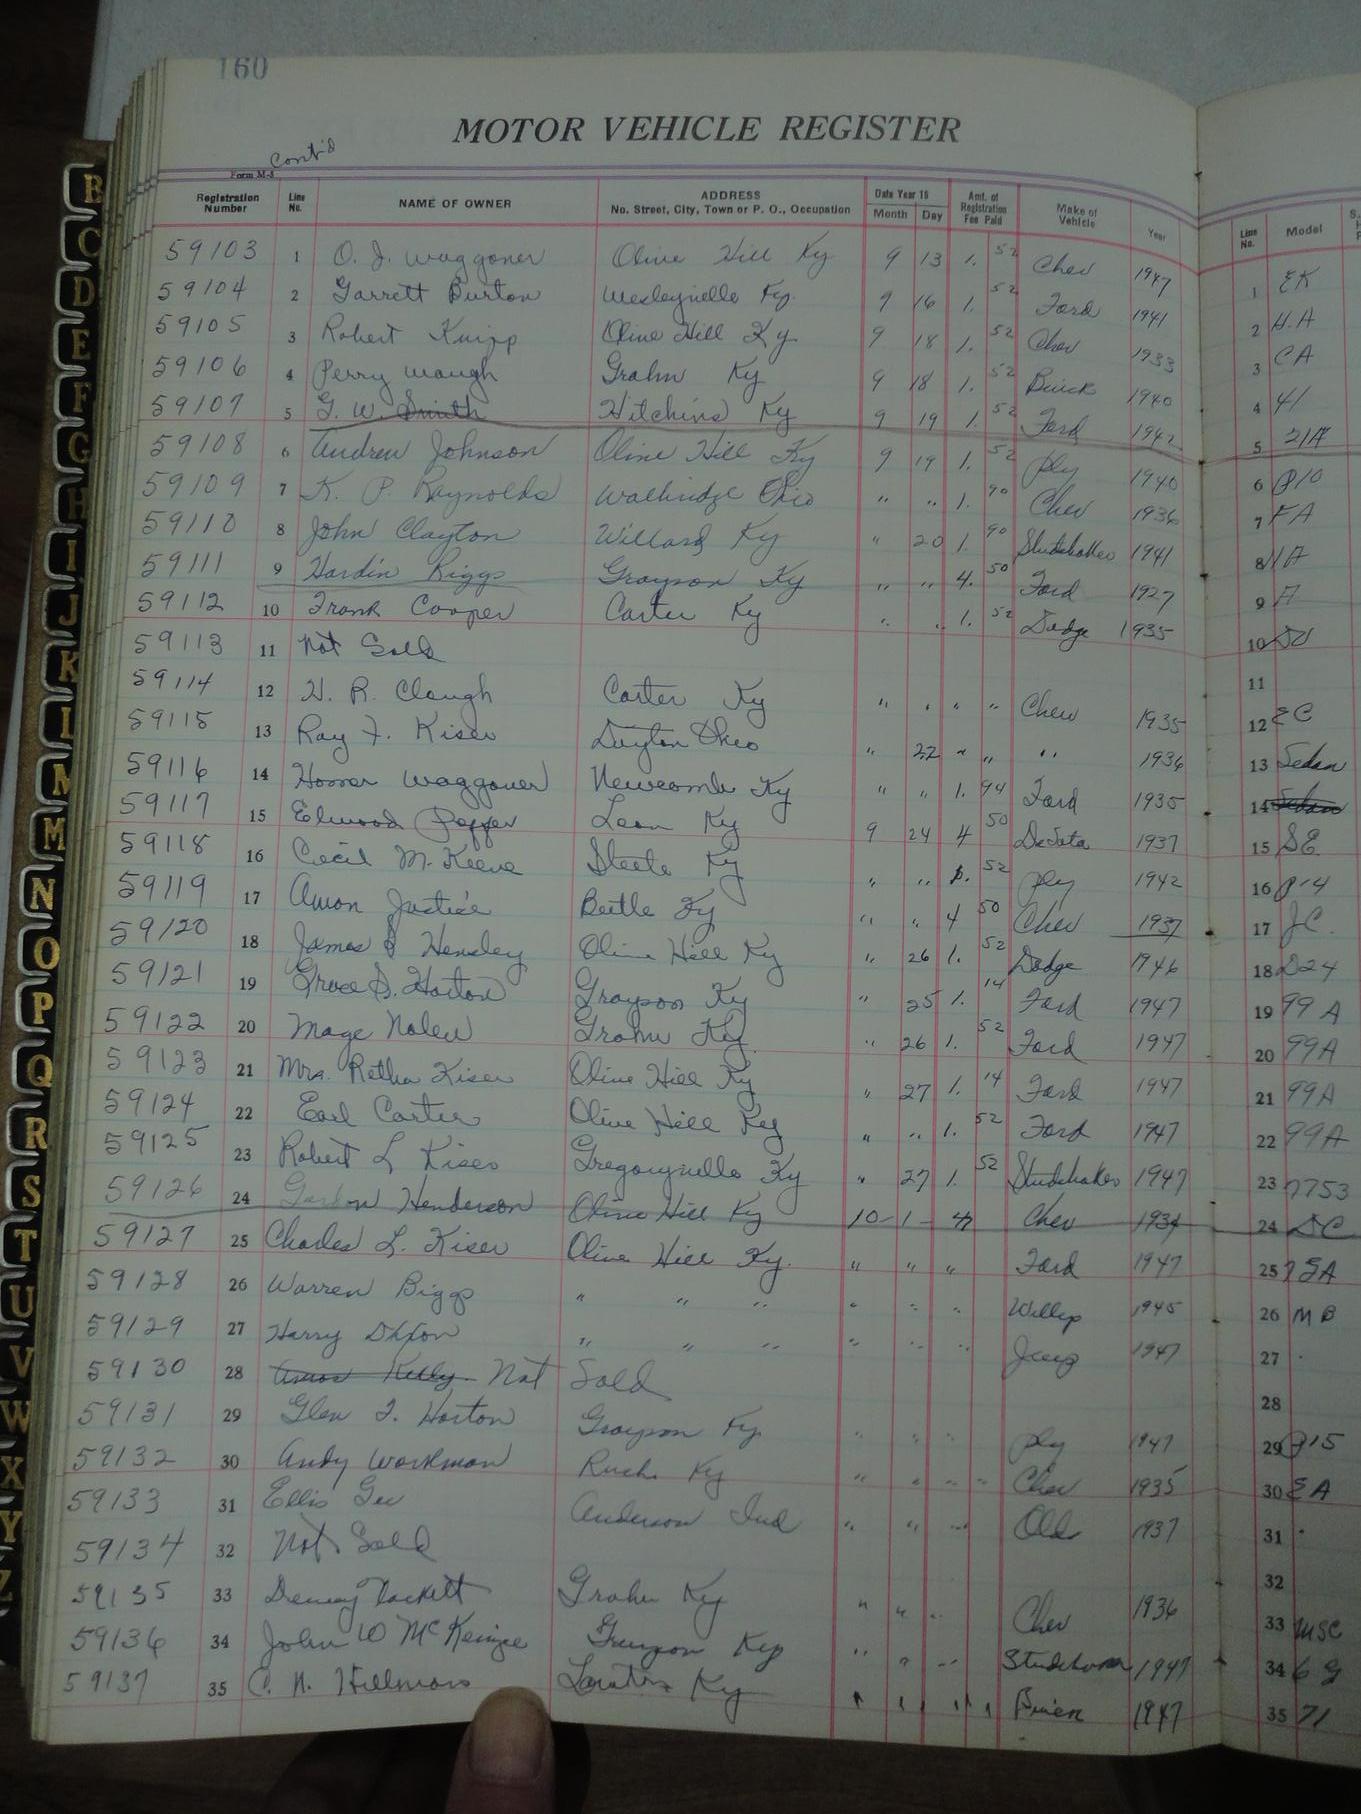 160
MOTOR VEHICLE REGISTER
Cont'd
Form M-8
Registration Number Line No. NAME OF OWNER ADDRESS No. Street, City, Town or P. O., Occupation Date Year 19 Month Day Amt. of Registration Fee Paid Make of Vehicle Year Line No. Model
59103 1 O. J. Waggoner Olive Hill Ky 9 13 1. 52 Chev 1947 1 EK
59104 2 Garrett Burton Wesleyville Ky. 9 16 1. 52 Ford 1941 2 H.A
59105 3 Robert Knipp Olive Hill Ky 9 18 1. 52 Chev 1933 3 CA
59106 4 Perry Waugh Grahn Ky 9 18 1. 52 Buick 1940 4 41
59107 5 G. W. Smith Hitchins Ky 9 19 1. 52 Ford 1942 5 21A
59108 6 Andrew Johnson Olive Hill Ky 9 19 1. 52 Ply 1940 6 P10
59109 7 K. P. Raynolds Walbridge Ohio " " 1. 90 Chev 1936 7 FA
59110 8 John Clayton Willard Ky " 20 1. 90 Studebaker 1941 8
59111 9 Hardin Riggs Grayson Ky " " 4. 50 Ford 1927 9 A
59112 10 Frank Cooper Carter Ky " " 1. 52 Dodge 1935 10 DU
59113 11 Not Sold 11
59114 12 H. R. Clough Carter Ky " " " " Chev 1935 12 EC
59115 13 Ray F. Kiser Dayton Ohio " 22 " " " 1936 13 Sedan
59116 14 Homer Waggoner Newcombe Ky " " 1. 94 Ford 1935 14 Sedan
59117 15 Elwood Pepper Leon Ky 9 24 4 50 DeSoto 1937 15 SE
59118 16 Cecil McKeeve Steele Ky " " 1. 52 Ply 1942 16 P14
59119 17 Amon Justice Beetle Ky " " 4 50 Chev 1937 17 JC.
59120 18 James Hensley Olive Hill Ky " 26 1. 52 Dodge 1946 18 D24
59121 19 Grace S. Horton Grayson Ky " 25 1. 14 Ford 1947 19 99A
59122 20 Mage Nolen Grahn Ky " 26 1. 52 Ford 1947 20 99A
59123 21 Mrs. Retha Kiser Olive Hill Ky " 27 1. 14 Ford 1947 21 99A
59124 22 Earl Carter Olive Hill Ky " " 1. 52 Ford 1947 22 99A
59125 23 Robert L Kiser Gregoryville Ky " 27 1. 52 Studebaker 1947 23 7753
59126 24 Gordon Henderson Olive Hill Ky 10 1 Chev 1934 24 DC
59127 25 Charles L. Kiser Olive Hill Ky. " " " Ford 1947 25 7SA
59128 26 Warren Biggs " " " " " " Willys 1945 26 MB
59129 27 Harry Dixon " " " " " " Jeep 1947 27
59130 28 Amos Kelly Not Sold 28
59131 29 Glen F. Horton Grayson Ky " " " Ply 1947 29 P15
59132 30 Andy Workman Rush Ky " " " " Chev 1935 30 EA
59133 31 Ellis Gee Anderson Ind " " " Old 1937 31
59134 32 Not Sold 32
59135 33 Dewey Tackett Grahn Ky " " " Chev 1936 33 MSC
59136 34 John W McKenzie Grayson Ky " " " 1947 34 6G
59137 35 C. H. Hillman Ky " " " " 1947 35 71
B
C
D
E
F
G
H
I
J
K
L
M
M
N
O
P
Q
R
S
T
U
V
W
X
Y
Z